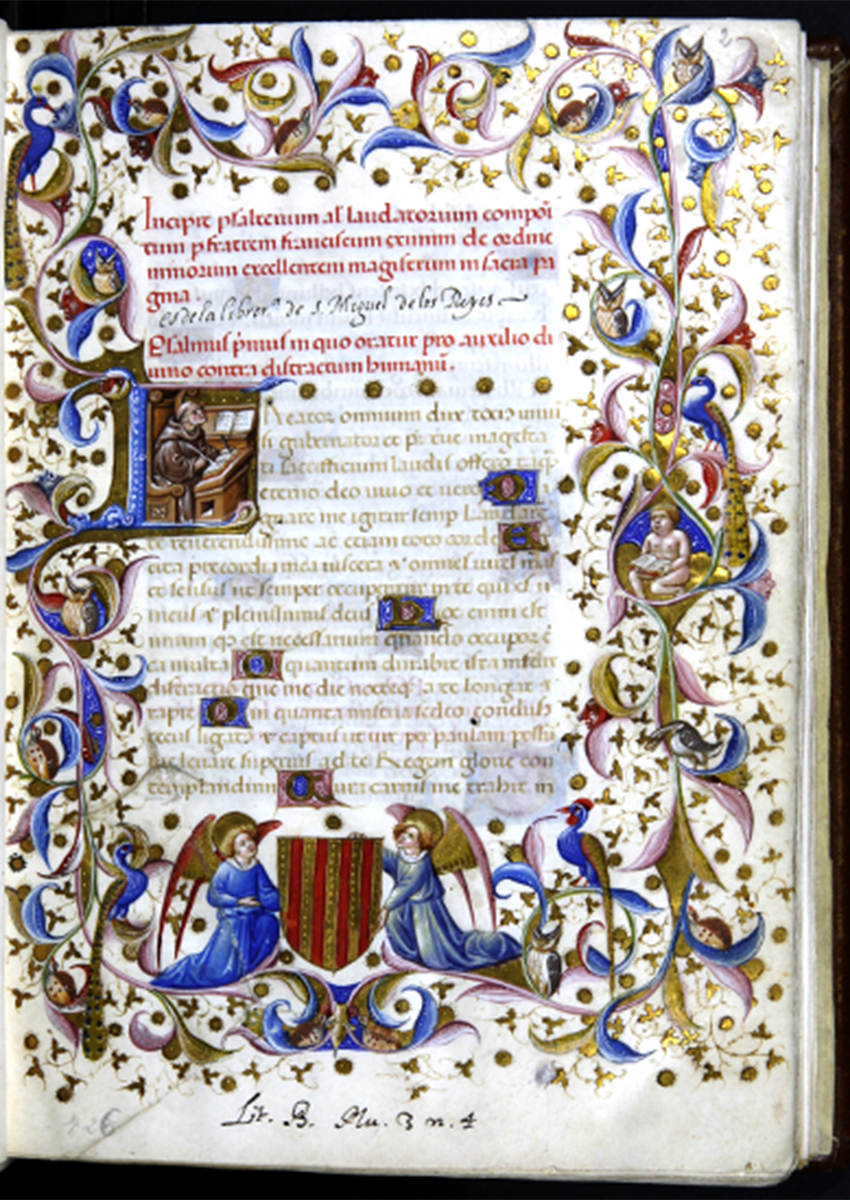 2
Incipit psalterium al' laudatorium compoi
tum p fratrem franciscum eximini de ordine
minorum excellentem magistrum in sacra pa
gina
es de la librer.ª de s. Miguel de los Reyes
Psalmus p̄mus in quo oratur pro auxilio di
uino contra distractum humanū.
Reator omnium dux
gubernator et
sacrificium laudis offero
eterno deo uiuo et uero
me igitur semp laudare
te reuerendissime ac etiam toto corde
precordia mea uiscera omnes
et sensus ut semper occupentur in te qui es
meus plenissimus deus hoc enim est
unum qd est necessarium quando occupor
multa quantum durabit ista
distractio que me die nocteq a te longat
rapit in quanta miseria sedeo conditus
cecus ligatus captus ut uix per paulam possum
leuare superius ad te Regem glorie con
templandum cura carnis me trahit in
Lit. B. Plu. 3 n. 4